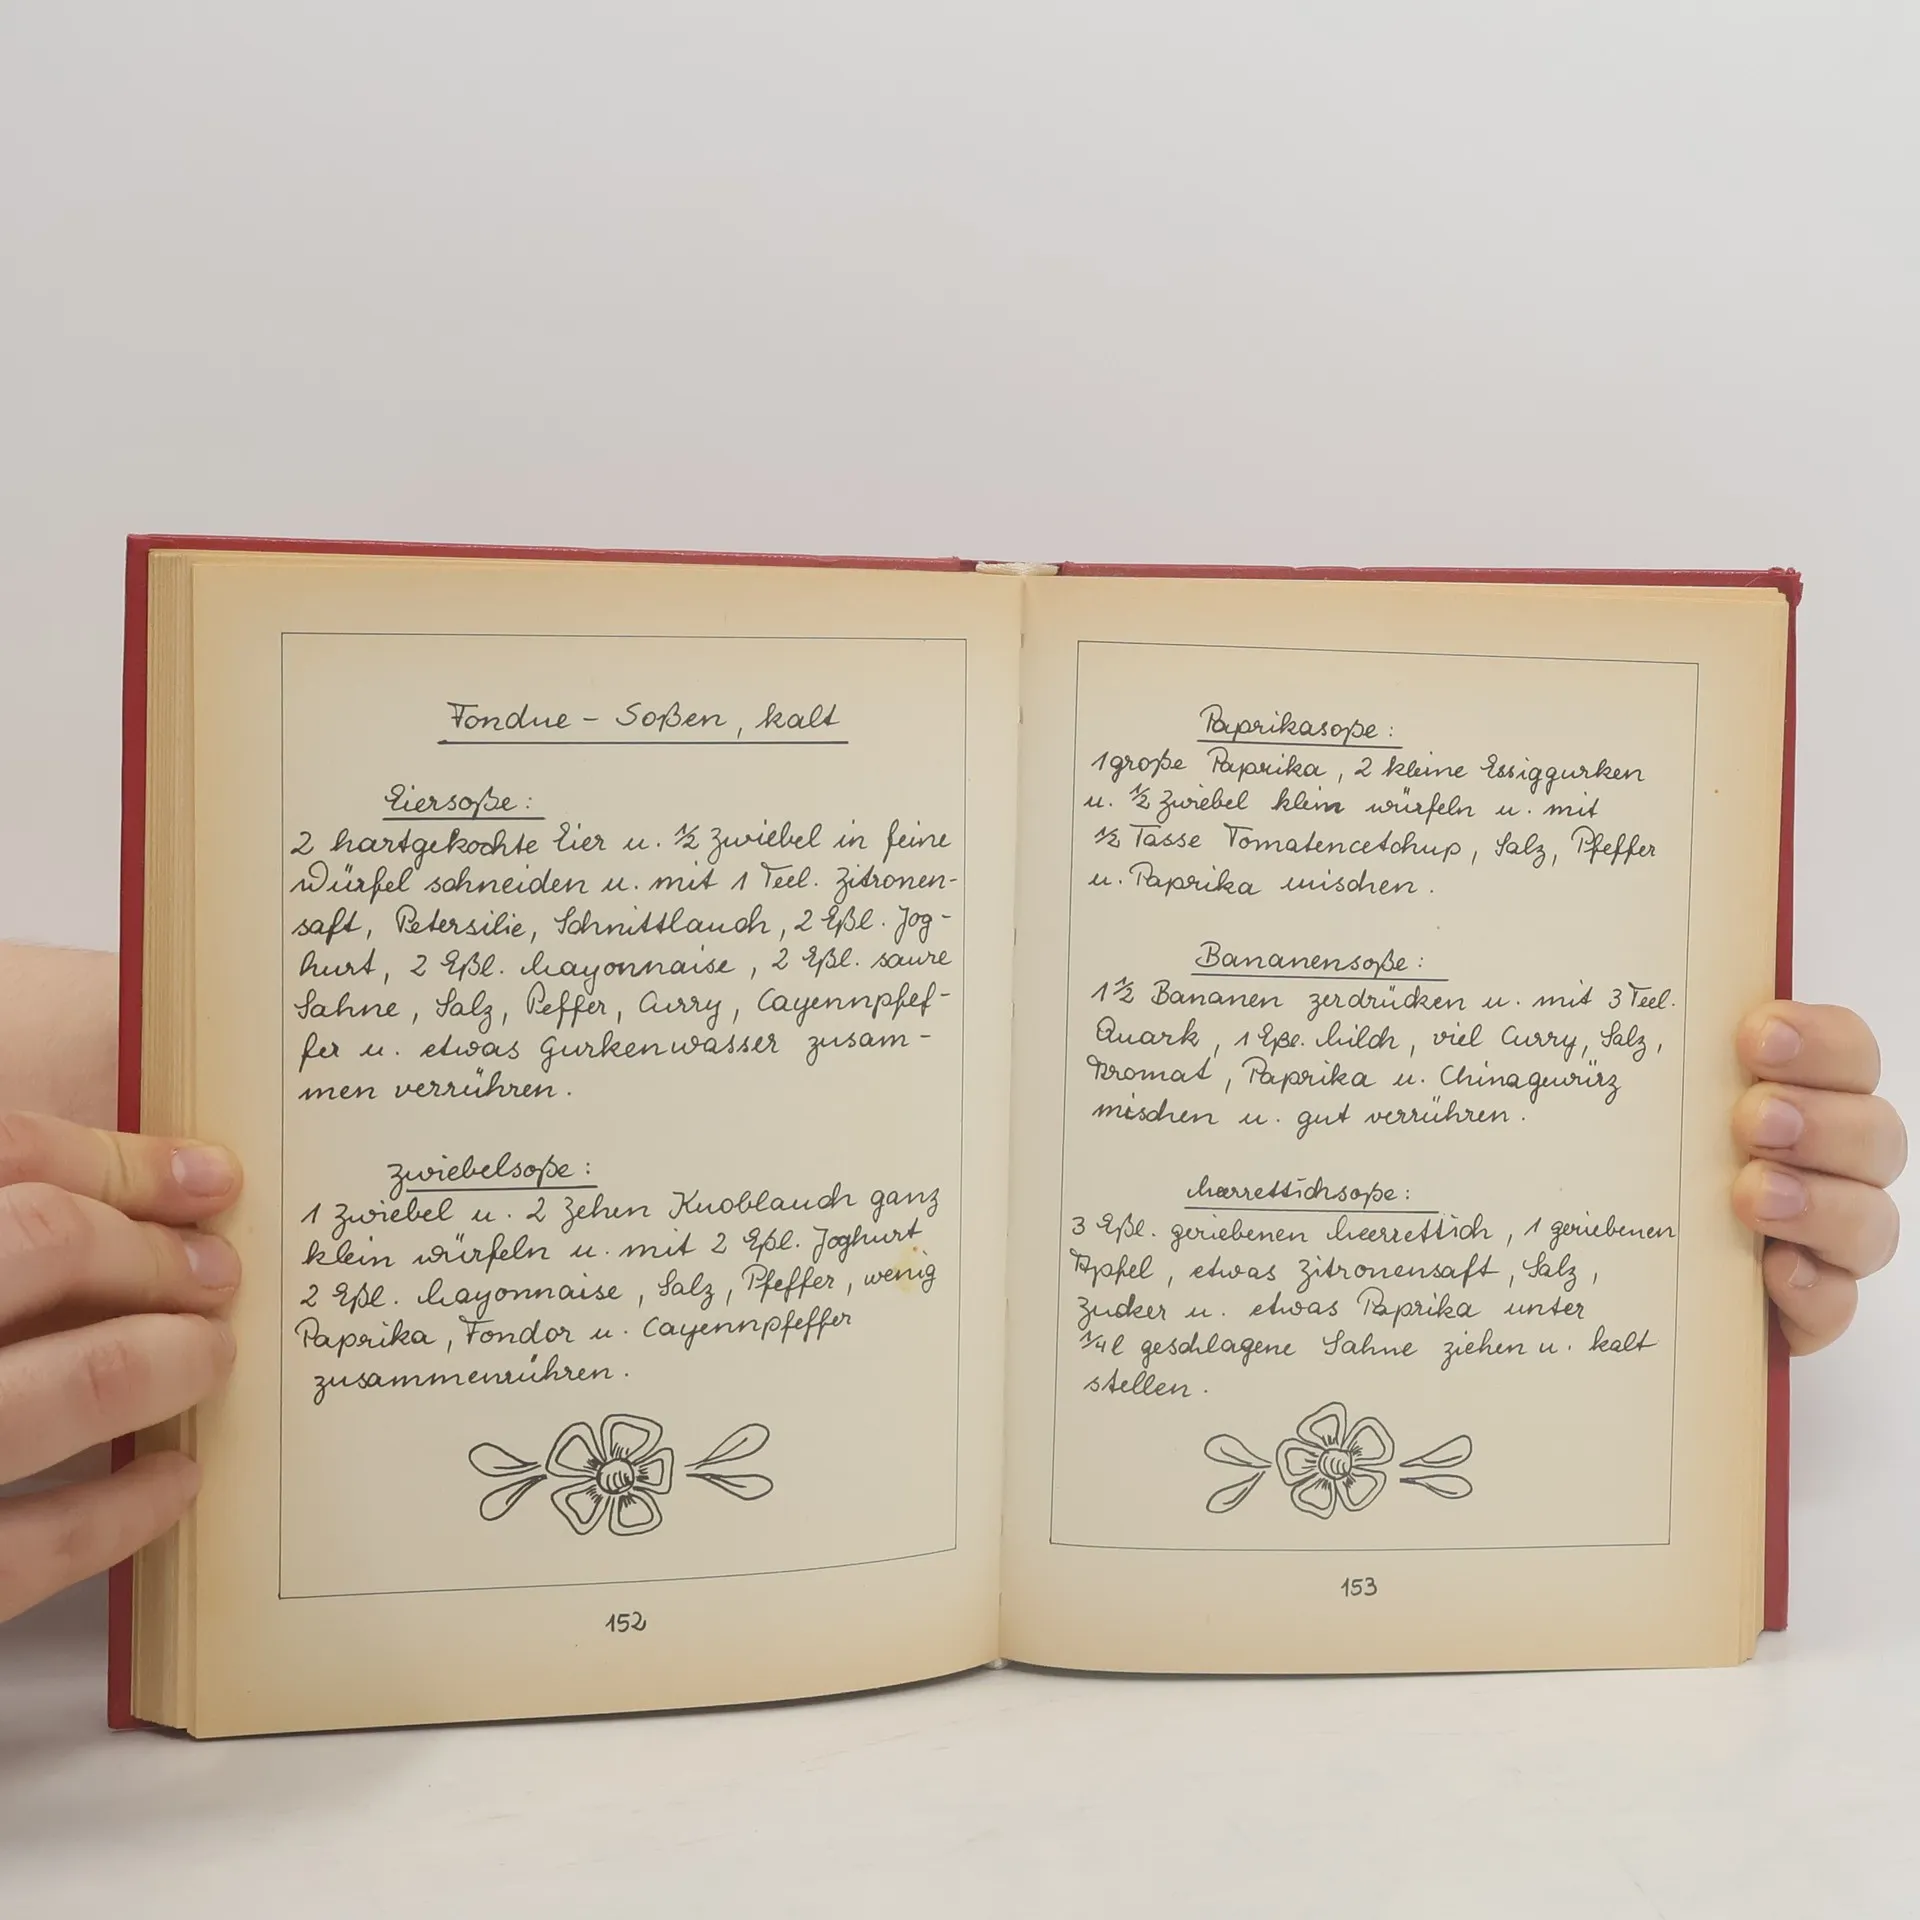 Fondue - Soßen, kalt
Eiersoße:
2 hartgekochte Eier u. ½ Zwiebel in feine
Würfel schneiden u. mit 1 Teel. Zitronen-
saft, Petersilie, Schnittlauch, 2 Eßl. Jog-
hurt, 2 Eßl. Mayonnaise, 2 Eßl. saure
Sahne, Salz, Peffer, Curry, Cayennpfef-
fer u. etwas Gurkenwasser zusam-
men verrühren.
Zwiebelsoße:
1 Zwiebel u. 2 Zehen Knoblauch ganz
klein würfeln u. mit 2 Eßl. Joghurt
2 Eßl. Mayonnaise, Salz, Pfeffer, wenig
Paprika, Fondor u. Cayennpfeffer
zusammenrühren.
152
Paprikasoße:
1 große Paprika, 2 kleine Essiggurken
u. ½ Zwiebel klein würfeln u. mit
½ Tasse Tomatencetchup, Salz, Pfeffer
u. Paprika mischen.
Bananensoße:
1½ Bananen zerdrücken u. mit 3 Teel.
Quark, 1 Eßl. Milch, viel Curry, Salz,
Aromat, Paprika u. Chinagewürz
mischen u. gut verrühren.
Meerrettichsoße:
3 Eßl. geriebenen Meerrettich, 1 geriebenen
Apfel, etwas Zitronensaft, Salz,
Zucker u. etwas Paprika unter
¼ l geschlagene Sahne ziehen u. kalt
stellen.
153